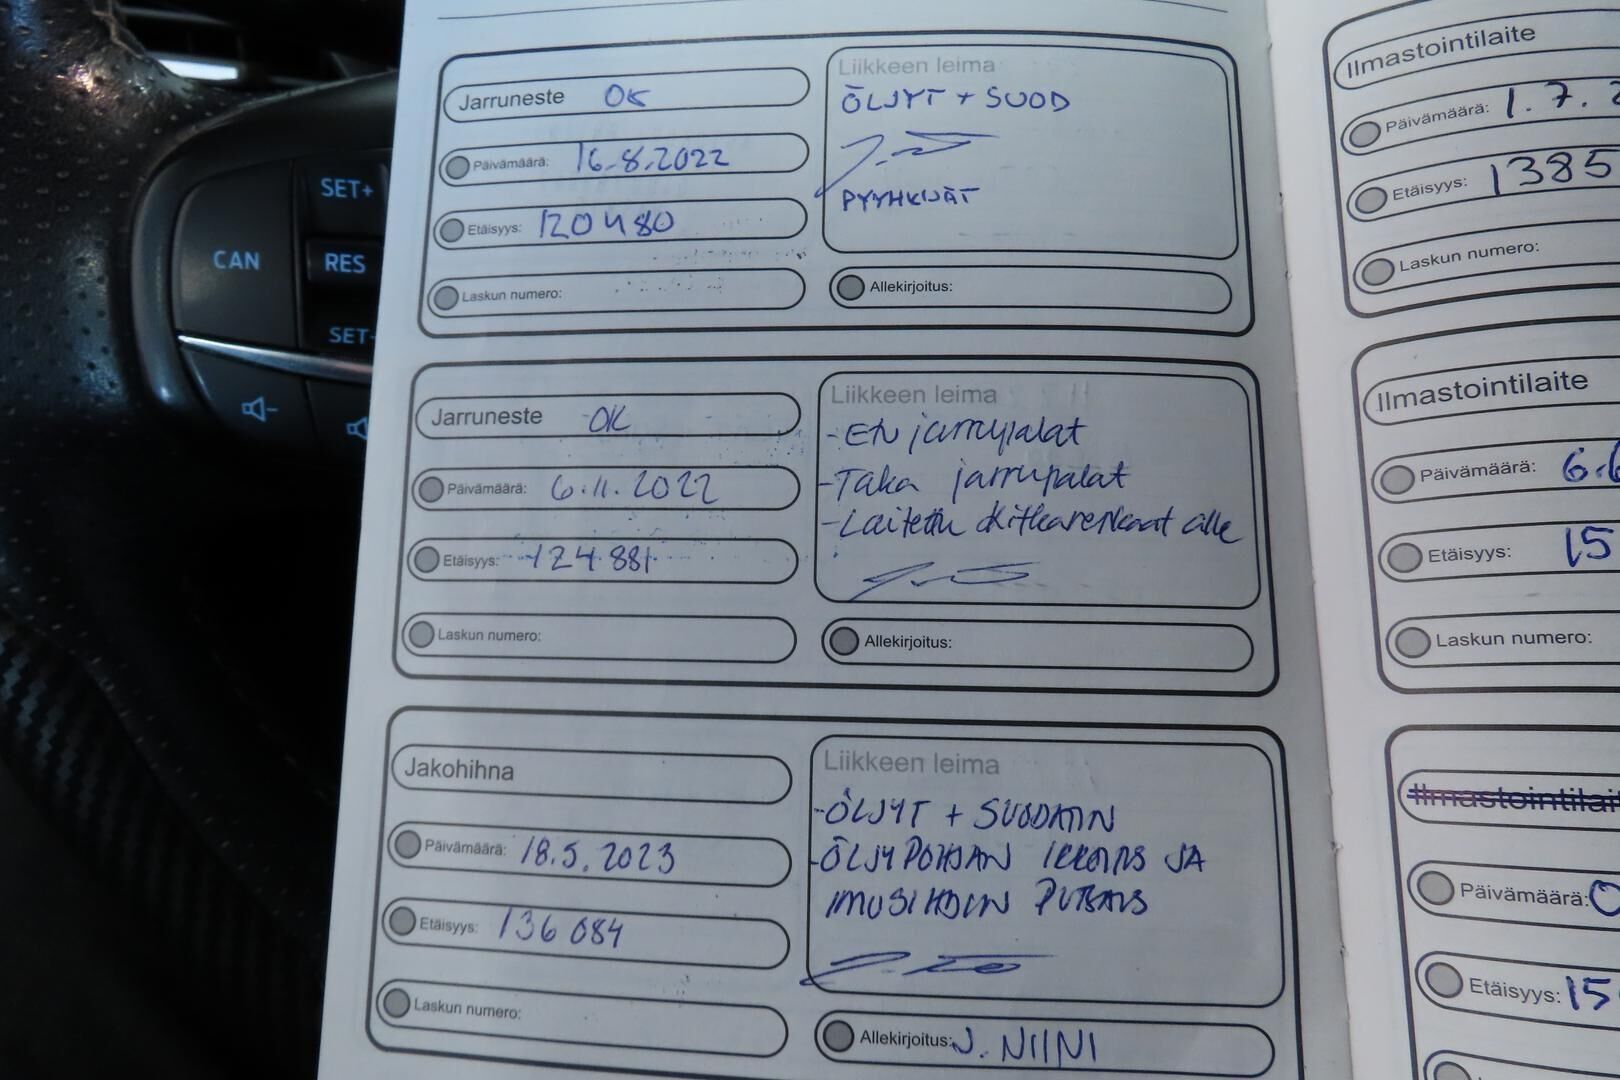 CAN
SET+
RES
SET-
Jarruneste OK
Päivämäärä: 16.8.2022
Etäisyys: 120480
Laskun numero:
Liikkeen leima
ÖLJYT + SUOD
PYYHKIJÄT
Allekirjoitus:
Jarruneste OK
Päivämäärä: 6.11.2022
Etäisyys: 124881
Laskun numero:
Liikkeen leima
- Etu jarrupalat
- Taka jarrupalat
- Laitettu kitkarenkaat alle
Allekirjoitus:
Jakohihna
Päivämäärä: 18.5.2023
Etäisyys: 136 084
Laskun numero:
Liikkeen leima
- ÖLJYT + SUODATIN
- ÖLJYPOHJAN IRROITUS JA
IMUSIHDIN PUTSAUS
Allekirjoitus: J. NIINI
Ilmastointilaite
Päivämäärä: 1.7.
Etäisyys: 1385
Laskun numero:
Ilmastointilaite
Päivämäärä: 6.6
Etäisyys: 15
Laskun numero:
Ilmastointilait
Päivämäärä: 0
Etäisyys: 15